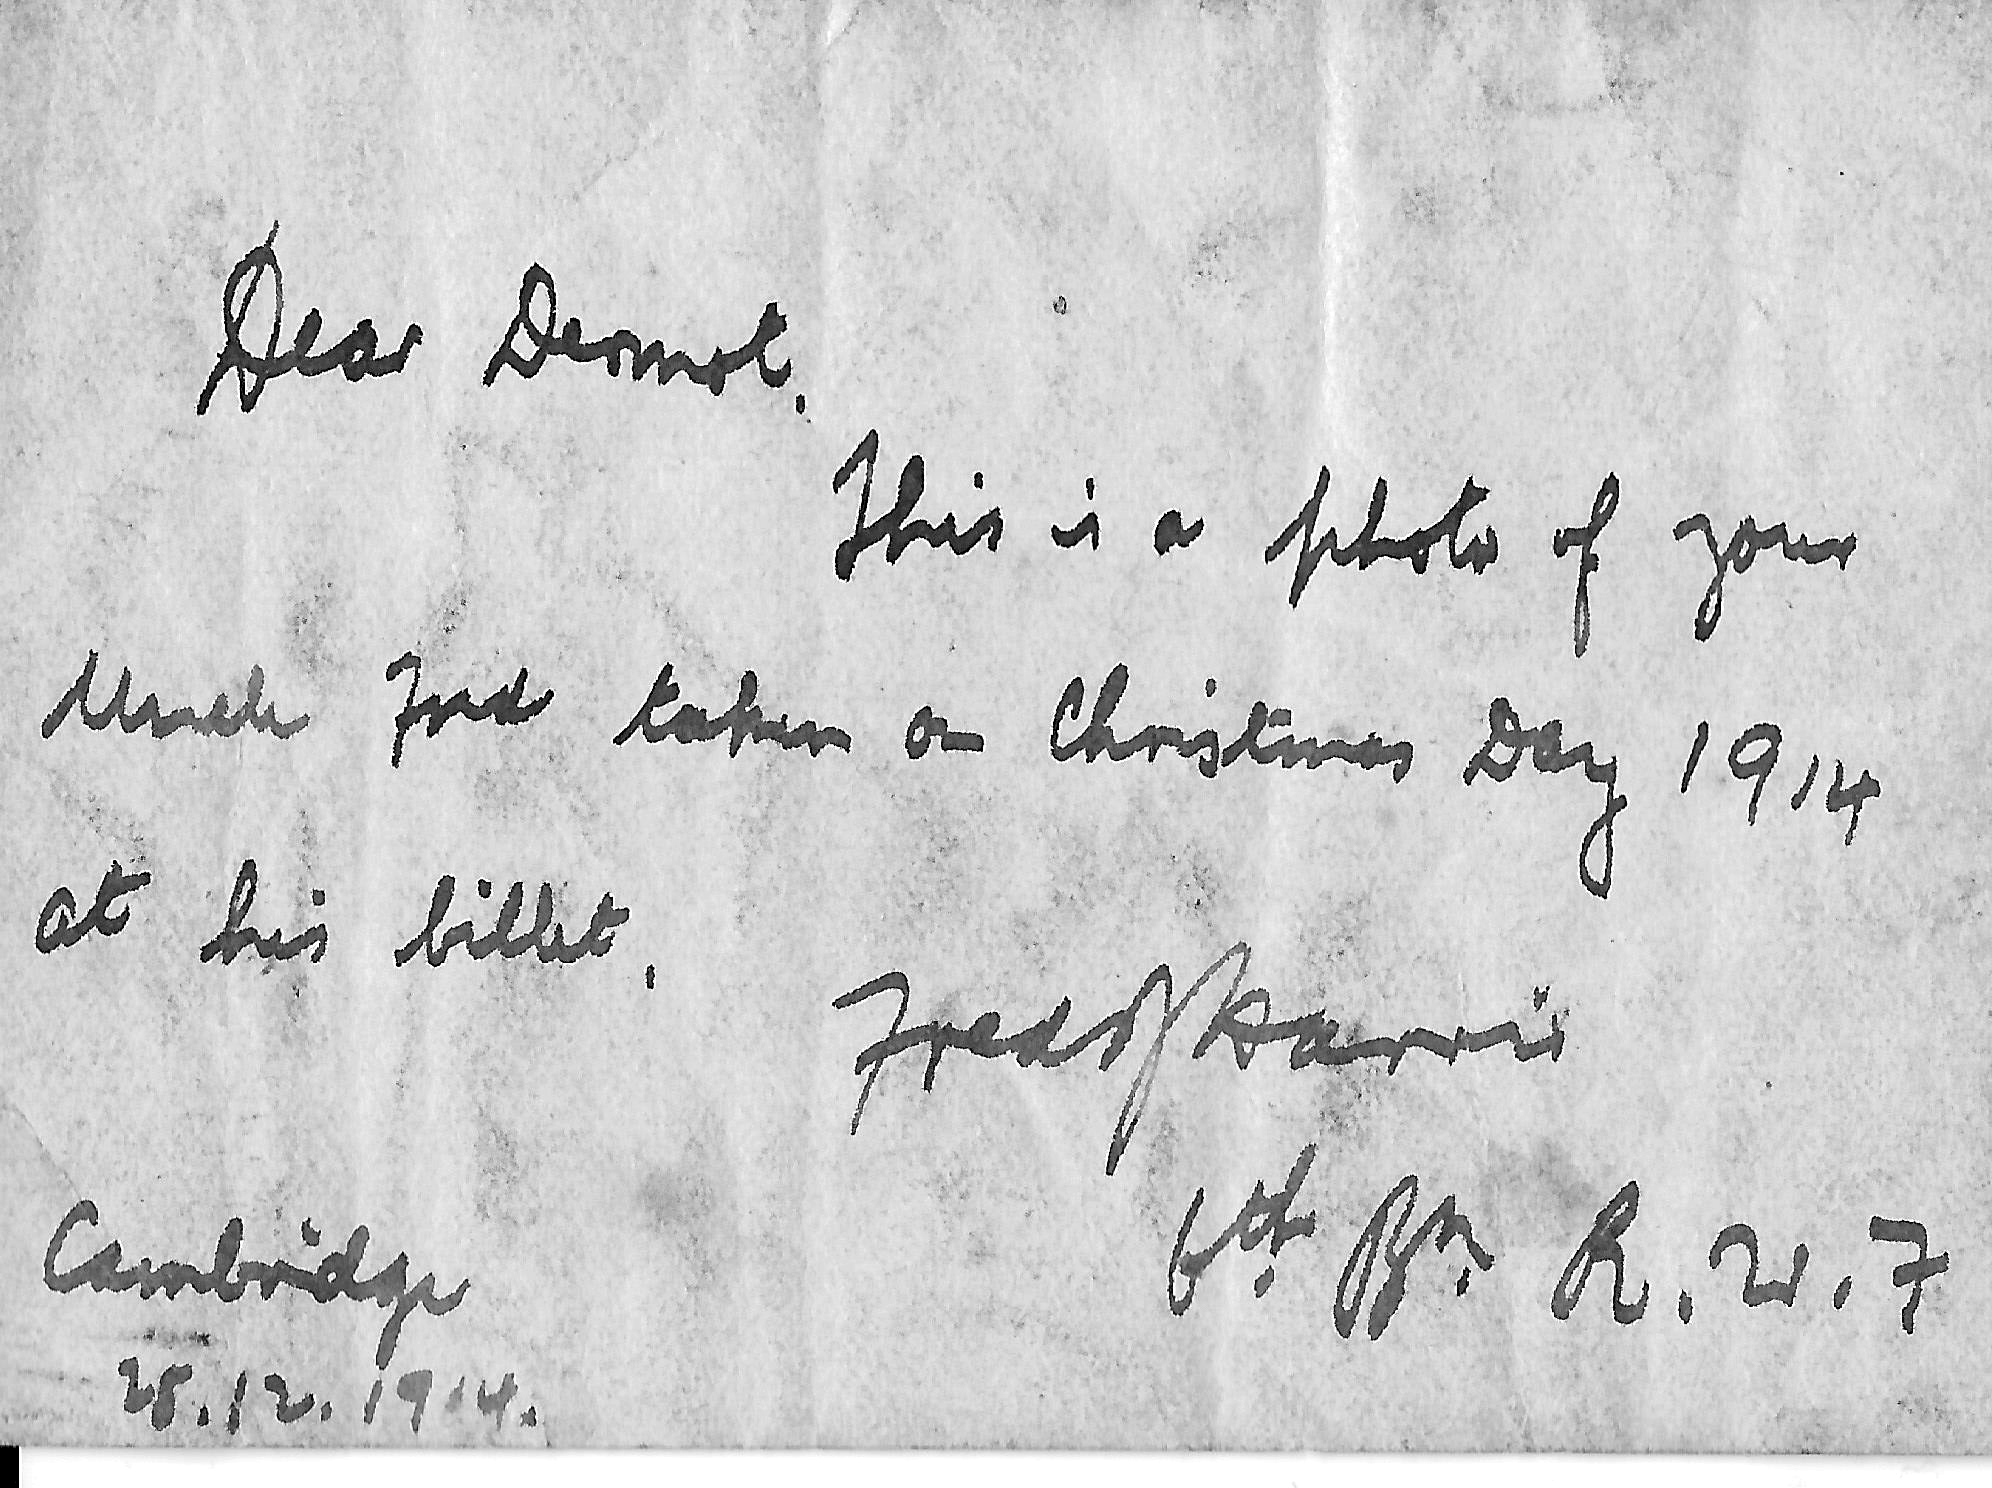 Dear Dermot.
This is a photo of your
Uncle Fred taken on Christmas Day 1914
at his billet.
Fred Harris
6th. Bn. R. W. F
Cambridge
28.12.1914.